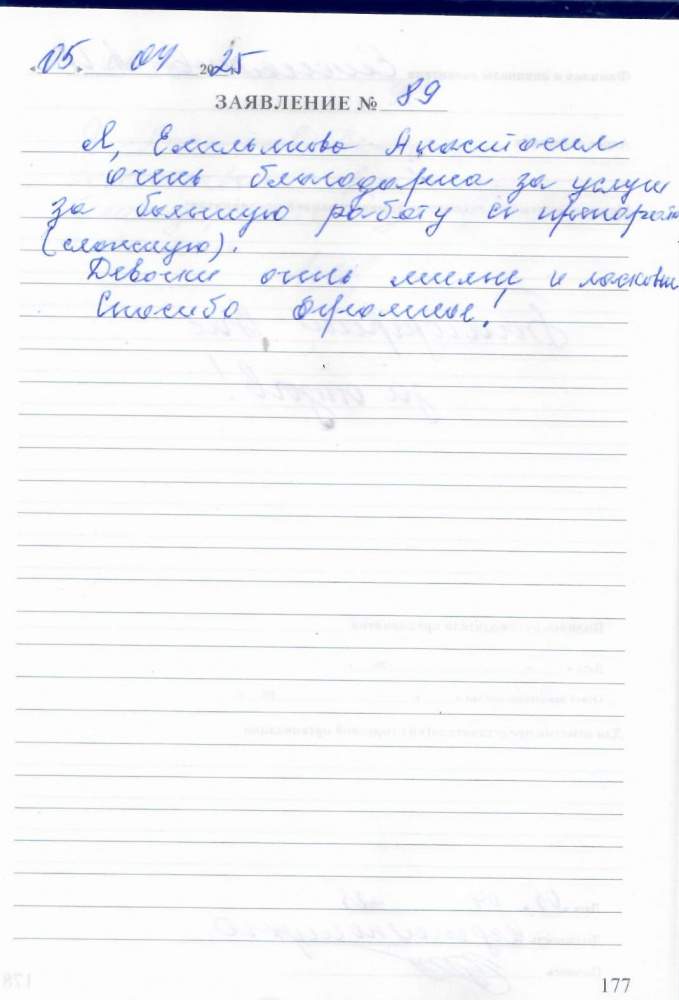 «05» 04 2025
ЗАЯВЛЕНИЕ № 89
Я, Емильянова Анастасия
очень благодарна за услуги
за большую работу с
(сложную).
Девочки очень милые и ласковые
Спасибо огромное!
177